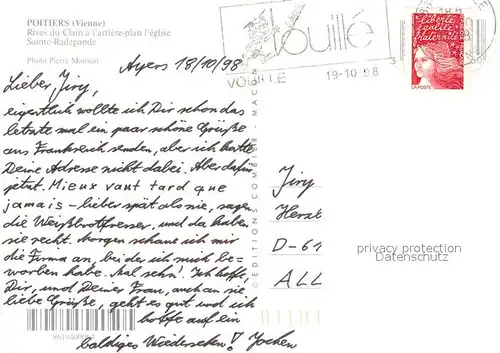 POITIERS (Vienne)
Rives du Clain à l'arrière-plan l'église
Sainte-Radegonde
Photo Pierre
Vouillé
VOUILLE 19-10-98
liberté
égalité
fraternité
LA POSTE
Ayers 18/10/98
Lieber Jiry,
eigentlich wollte ich Dir schon das
letzte mal ein paar schöne Grüße
aus Frankreich senden, aber ich hatte
Deine Adresse nicht dabei. Aber dafür
jetzt. Mieux vaut tard que
jamais – lieber spät als nie, sagen
die Weißbrotfresser, und da haben
sie recht. Morgen schaue ich mir
die Firma an, bei der ich mich be-
worben habe. Mal seh'n! Ich hoffe,
Dir, und Deiner Frau, auch an sie
liebe Grüße, geht es gut und ich
hoffe auf ein
baldiges Wiedersehen! Jochen
© EDITIONS COMBIER - MAC
Jiry
D-61
ALL
privacy protection
Datenschutz